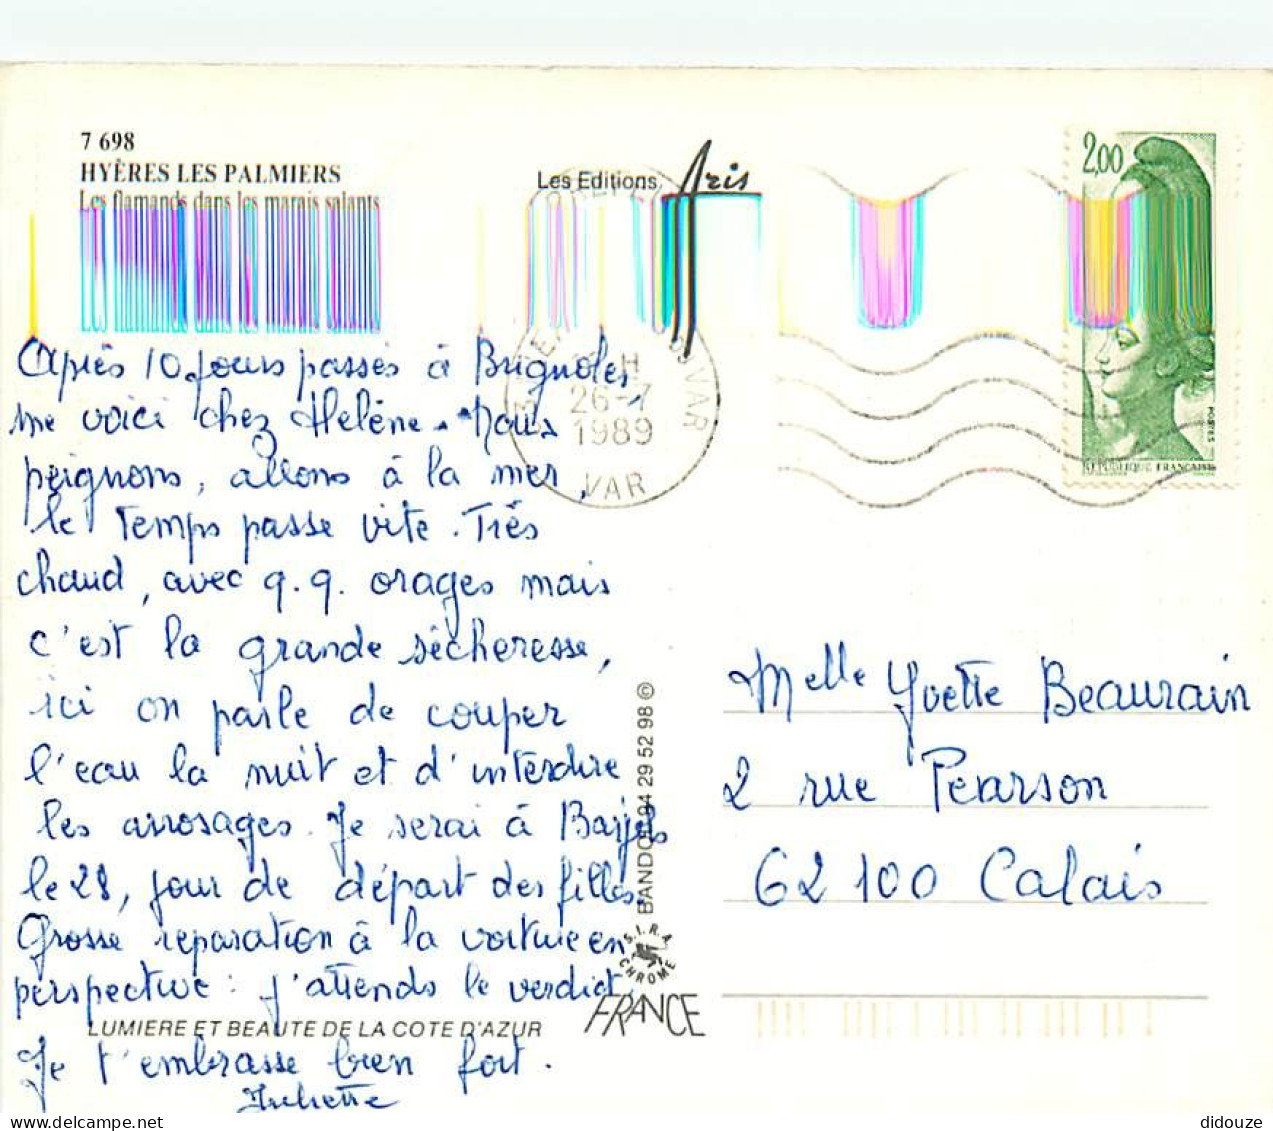 7 698
HYÈRES LES PALMIERS
Les flamands dans les marais salants
Les Editions Aris
2,00
POSTES
REPUBLIQUE FRANCAISE
26-7
1989
VAR
Après 10 jours passés à Brignoles,
me voici chez Helène. Nous
peignons, allons à la mer,
le temps passe vite. Très
chaud, avec q.q. orages mais
c'est la grande sécheresse,
ici on parle de couper
l'eau la nuit et d'interdire
les arrosages. Je serai à Barjols
le 28, jour de départ des filles.
Grosse reparation à la voiture en
perspective : j'attends le verdict.
Je t'embrasse bien fort.
Juliette
LUMIERE ET BEAUTE DE LA COTE D'AZUR
BANDOL 94 29 52 98 ©
S.I.R.A.
CHROME
FRANCE
Melle Yvette Beaurain
2 rue Pearson
62100 Calais
didouze